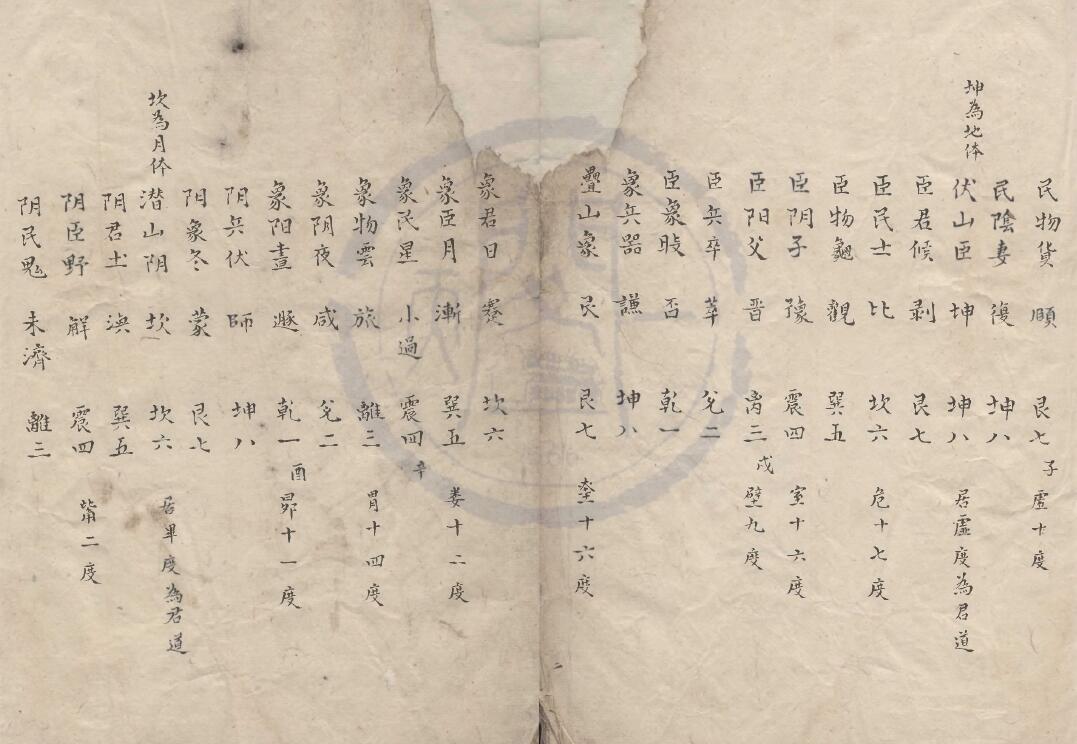 民物貨 頤 艮七 子 虛十度
民陰妻 復 坤八
坤為地体
伏山臣 坤 坤八 居虛度為君道
臣君候 剥 艮七
臣民士 比 坎六 危十七度
臣物龜 觀 巽五
臣阴子 豫 震四 室十六度
臣阳父 晋 离三 戌 壁九度
臣兵卒 萃 兌二
臣象 否 乾一
象兵器 謙 坤八
疊山象 艮 艮七 奎十六度
象君日 蹇 坎六
象臣月 漸 巽五 娄十二度
象民星 小過 震四 辛
象物雲 旅 離三 胃十四度
象阴夜 咸 兌二
象阳晝 遯 乾一 酉 昴十一度
阴兵伏 师 坤八
阴象冬 蒙 艮七
坎為月体
潜山阴 坎 坎六 居畢度為君道
阴君土 渙 巽五
阴臣野 解 震四 觜二度
阴民鬼 未濟 離三
二